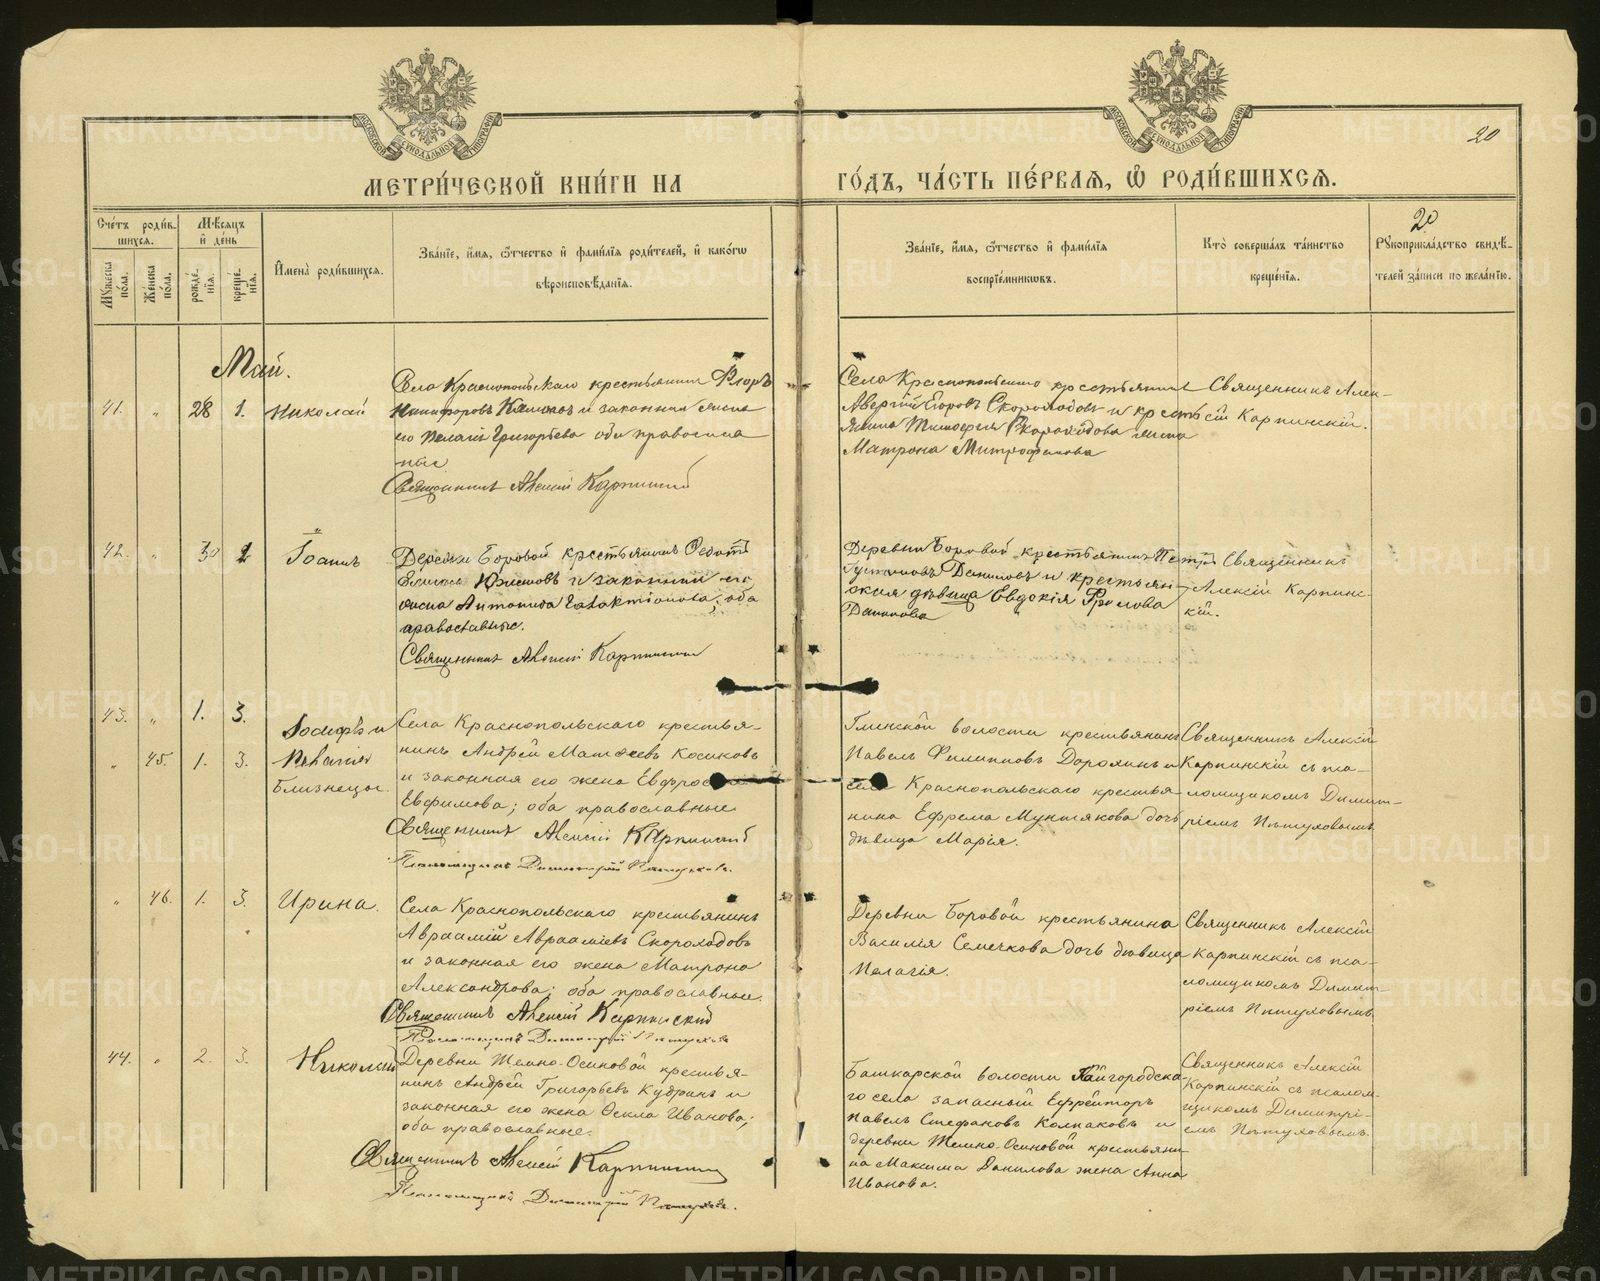 МЕТРИ́ЧЕСКОЙ КНИ́ГИ НА ГО́ДЪ, ЧА́СТЬ ПЕ́РВАЯ, Ѿ РОДИ́ВШИХСЯ.
20
20
Сче́тъ роди́в-
шихся.
Мѣсяцъ
и҆ де́нь
Му́жеска
по́ла.
Же́нска
по́ла.
рожде́-
нїя.
креще́-
нїя.
И҆мена̀ роди́вшихся.
Зва́нїе, и҆́мя, ѻ҆́тчество и҆ фами́лїя роди́телей, и҆ како́гѡ
вѣроисповѣ́данїя.
Зва́нїе, и҆́мя, ѻ҆́тчество и҆ фами́лїя
воспрїе́мникѡвъ.
Кто̀ соверша́лъ та́инство
креще́нїя.
Рꙋкоприкла́дство свидѣ́-
телей за́писи по жела́нїю.
Май.
41. „ 28 1. Николай
Села Краснопольскаго крестьянинъ
и законная жена
его Пелагія Григорьева оба православ
ные
Священникъ Алексій Карпинскій
Села Краснопольскаго крестьянинъ
Аверкій Егоровъ Скороходовъ и крестъ
янина Тимофея Скороходова жена
Матрона Митрофанова
Священникъ Алек-
сій Карпинскій.
42. „ 30 Іоаннъ
Деревни Боровой крестьянинъ
и законная его
жена Антонина Галактіонова; оба
православные.
Священникъ Алексій Карпинскій
Деревни Боровой крестьянинъ Петръ
Даниловъ и крестьян-
ская дѣвица Евдокія Фролова
Данилова
Священникъ
Алексій Карпинс-
кій.
43. „ 1. 3. Іосифъ и
„ 45. 1. 3.
Близнецы.
Села Краснопольскаго крестья-
нинъ Андрей Матѳеевъ Косиковъ
и законная его жена Евфросинія
Евфимова; оба православные
Священникъ Алексій Карпинскій
Псаломщикъ Димитрій Пѣтуховъ.
Глинской волости крестьянинъ
Павелъ Филипповъ Дорохинъ и
села Краснопольскаго крестья-
нина Ефрема Мунтякова дочь
дѣвица Марія.
Священникъ Алексій
Карпинскій съ пса-
ломщикомъ Димит-
ріемъ Пѣтуховымъ.
„ 46. 1. 3. Ирина.
Села Краснопольскаго крестьянинъ
Авраамій Авраамьевъ Скороходовъ
и законная его жена Матрона
Александрова; оба православные.
Священникъ Алексій Карпинскій
Псаломщикъ Димитрій Пѣтуховъ
Деревни Боровой крестьянина
Василія Семечкова дочь дѣвица
Пелагія.
Священникъ Алексій
Карпинскій съ пса-
ломщикомъ Димит-
ріемъ Пѣтуховымъ.
44. „ 2. 3. Николай
Деревни Темно-Осиновой крестья-
нинъ Андрей Григорьевъ Кудринъ и
законная его жена Ѳекла Иванова;
оба православные.
Священникъ Алексій Карпинскій
Псаломщикъ Димитрій Пѣтуховъ.
Башкарской волости Кайгородска-
го села запасный Ефрейторъ
Павелъ Стефановъ Колпаковъ и
деревни Темно-Осиновой крестьяни-
на Максима Данилова жена Анна
Иванова.
Священникъ Алексій
Карпинскій съ псалом-
щикомъ Димитрі-
емъ Пѣтуховымъ.
METRIKI.GASO-URAL.RU